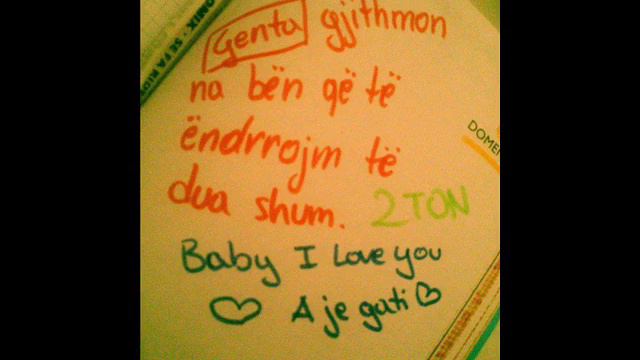 Genta gjithmon
na bën që të
ëndrrojm të
dua shum. 2TON
Baby I Love you
A je gati
DOMEN